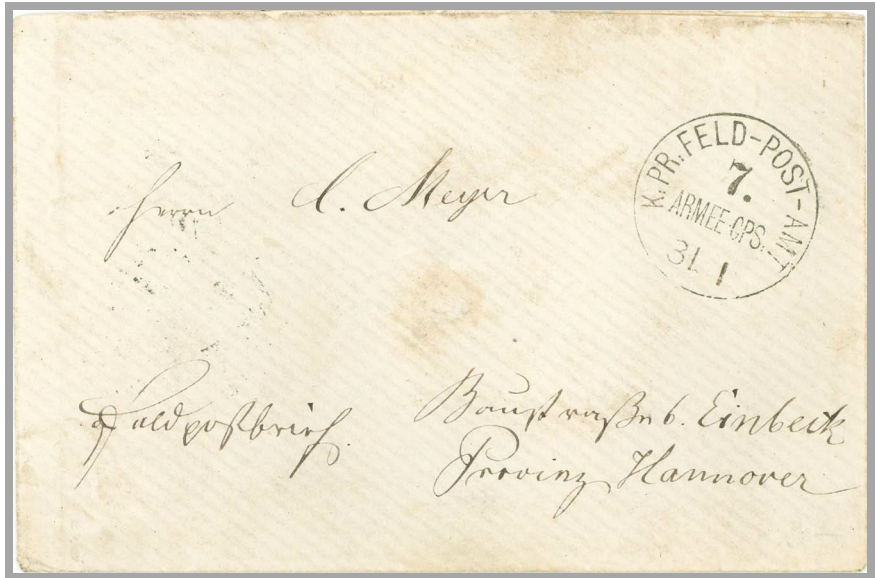 K.PR.FELD-POST-AMT
7.
ARMEE-CPS.
31. 1
Herrn C. Meyer
Feldpostbrief.
Baustraße 6. Einbeck
Provinz Hannover